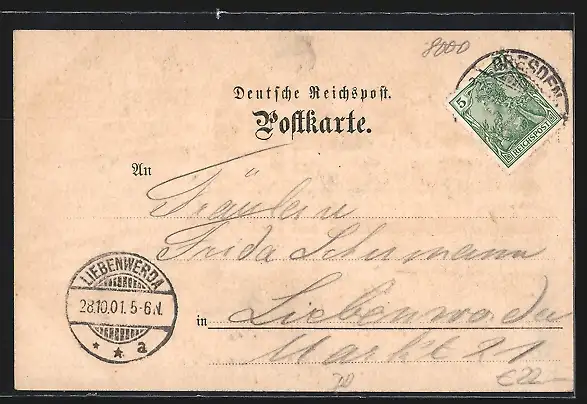 8000
DRESDEN
5
REICHSPOST
Deutsche Reichspost.
Postkarte.
An
Fräulein
Frida Schumann
LIEBENWERDA
28.10.01. 5-6N.
* * a
in Liebenwerda
Markt 21
€22-